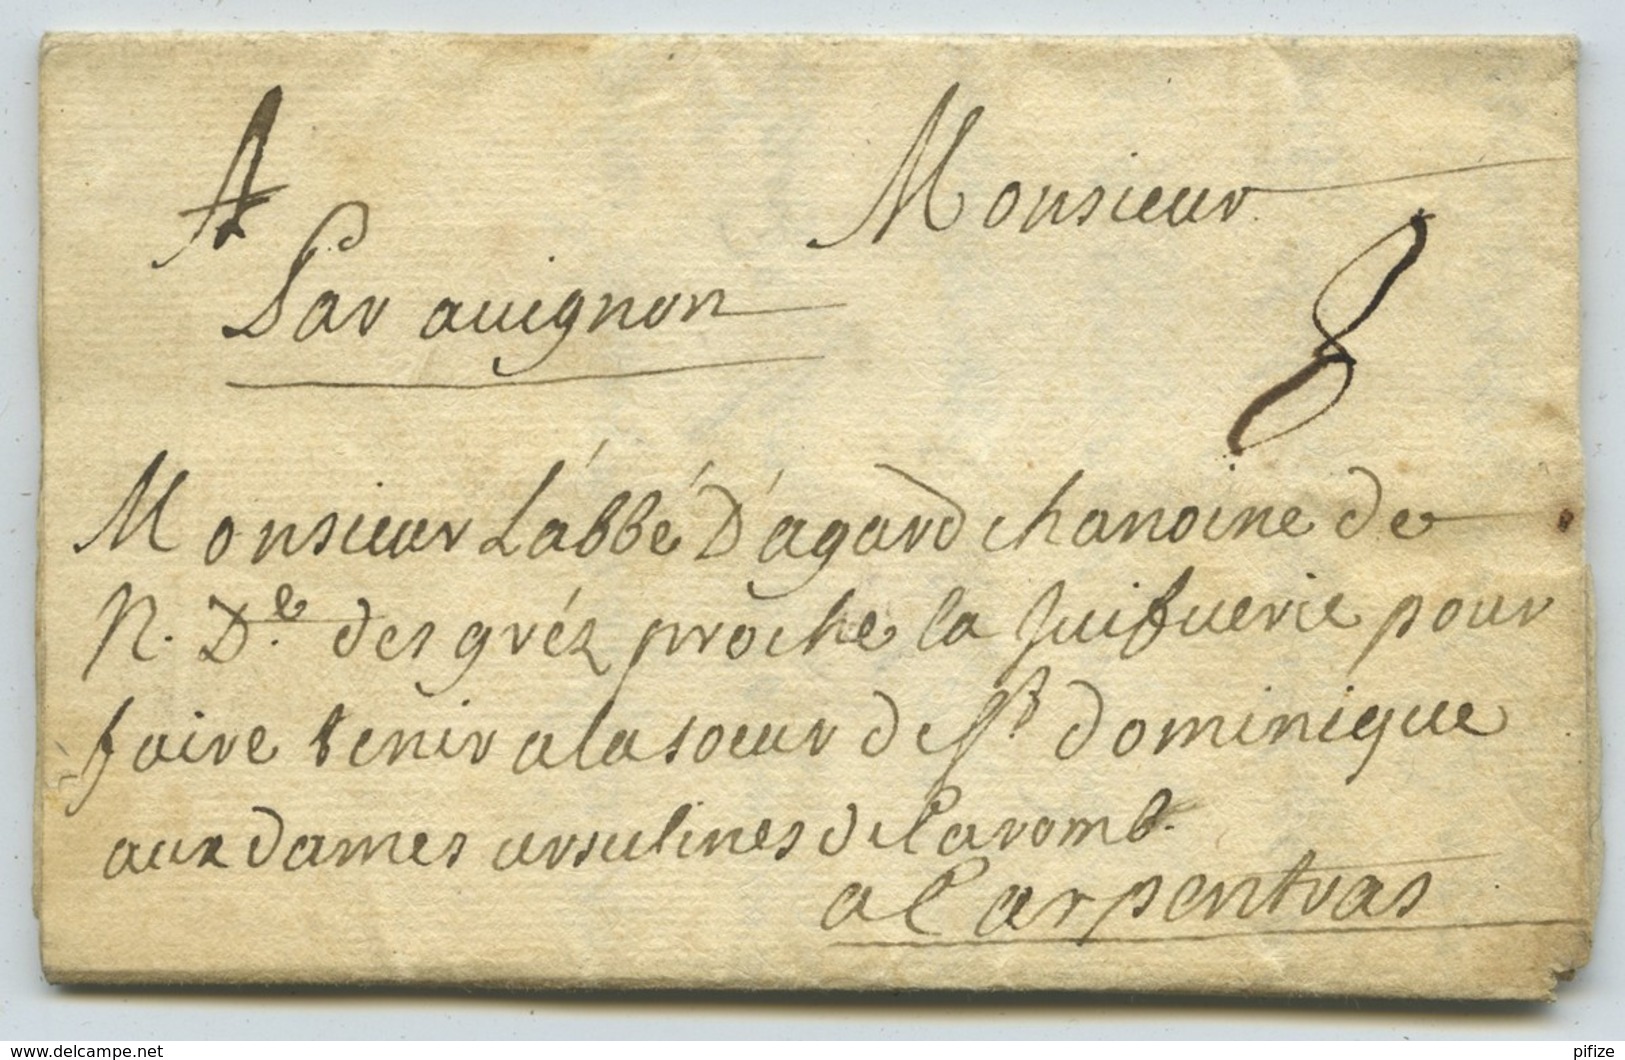 A
Monsieur
Par avignon
8
Monsieur L'abbé D'agard chanoine de
N. De. des gréz proche la Juifuerie pour
faire tenir a la soeur de St dominique
aux dames ursulines de Caromb.
a Carpentras
www.delcampe.net
pifize